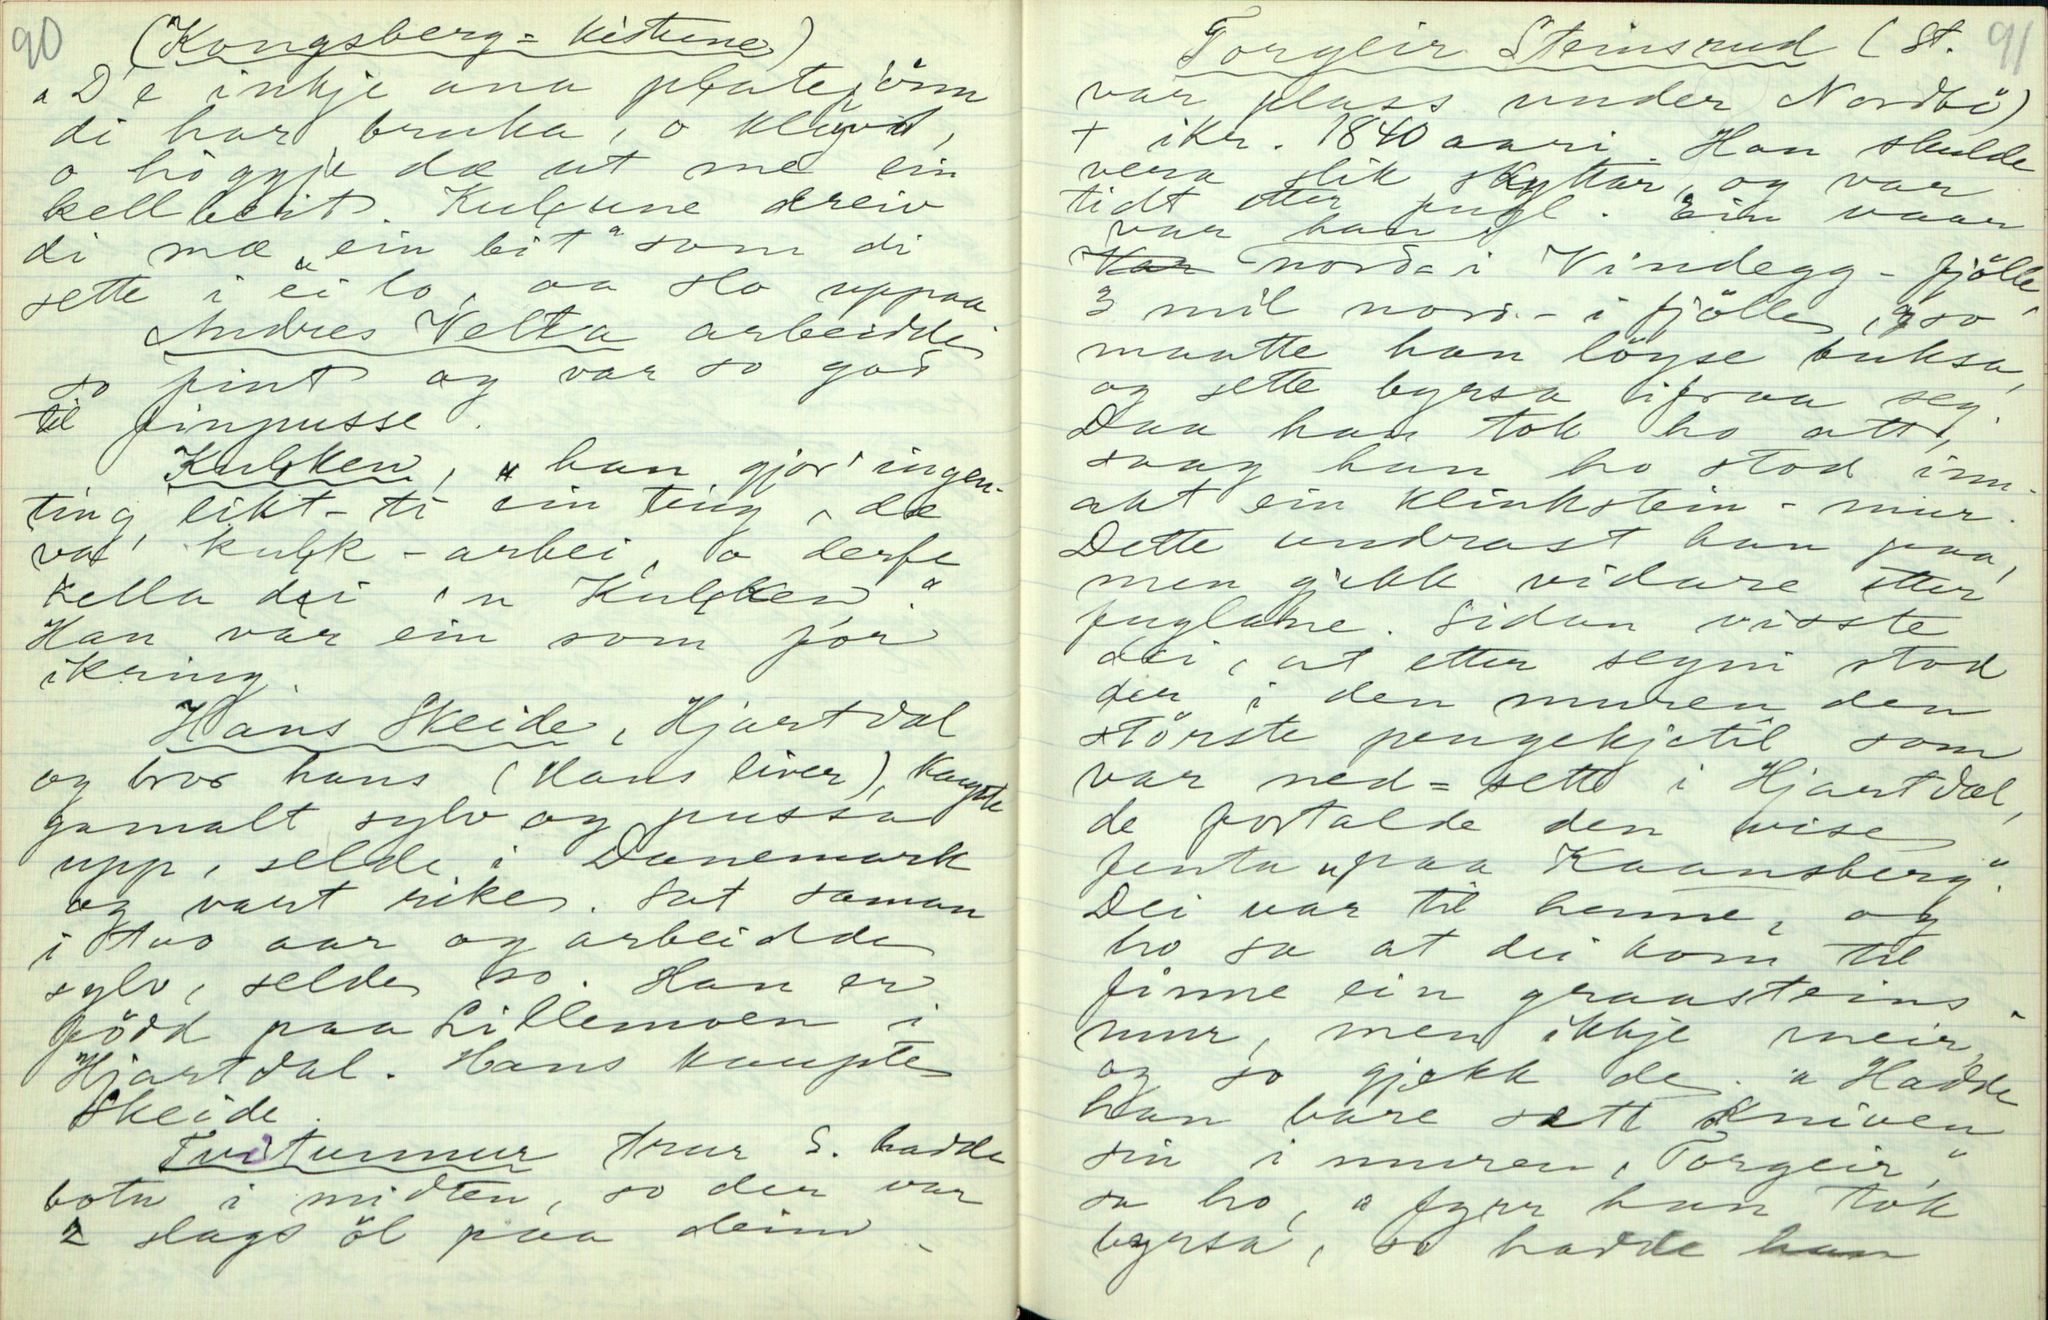 90
(Kongsberg-kistune)
"D'e inkje ana platejönn
di har bruka, o klyvd,
o höggje dæ ut me ein
kellbeit. Kulune dreiv
di mæ "ein bit" som di
sette i ei lo, aa slo uppaa
Andres Velta arbeidde
so fint og var so god
til finpusse.
Kulken, "han gjor' ingen-
ting likt-ti ein ting, dæ
va' kulk-arbei, o derfe
kella dei 'n Kulken."
Han var ein som for
ikring.
Hans Skeide, Hjartdal
og bror hans (Hans liver), kaupte
gamalt sylv og pussa
upp, selde i Danemark
og vart rike. Sat saman
i tvo aar og arbeidde
sylv, selde so. Han er
född paa Lillemoen i
Hjartdal. Hans kaupte
Skeide.
Tvitunnur trur S. hadde
botn i midten, so der var
2 slags öl paa deim.
91
Torgeir Steinsrud (St.
var plass under Nordbö)
+ ikr. 1840 aari. Han skulde
vera slik skyttar, og var
tidt etter fugl. Ein vaar
var han
Var nord-i Vindegg-fjölle,
3 mil nord-i fjölle, og so
maatte han löyse buksa,
og sette byrsa ifraa seg.
Daa han tok ho att,
saag han ho stod inn-
akt ein klinkstein-mur.
Dette undrast han paa,
men gjekk vidare etter
fuglane. Sidan visste
dei, at etter segni stod
der i den muren den
störste pengekjetil som
var ned-sett i Hjartdal,
de fortalde den vise
jenta "paa Kaansberg".
Dei var til henne, og
ho sa at dei kom til
finne ein graasteins-
mur, men ikkje meir,
og so gjekk de. "Hadde
han bare sett kniven
sin i muren, Torgeir,"
sa ho, "fyrr han tok
byrsa, so hadde han